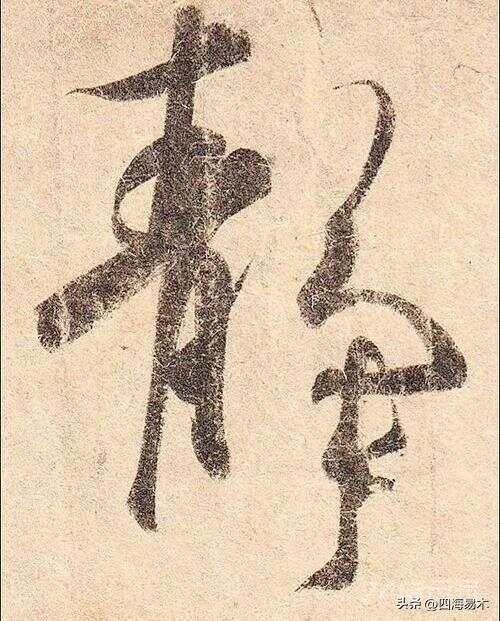 静
头条 @四海易木